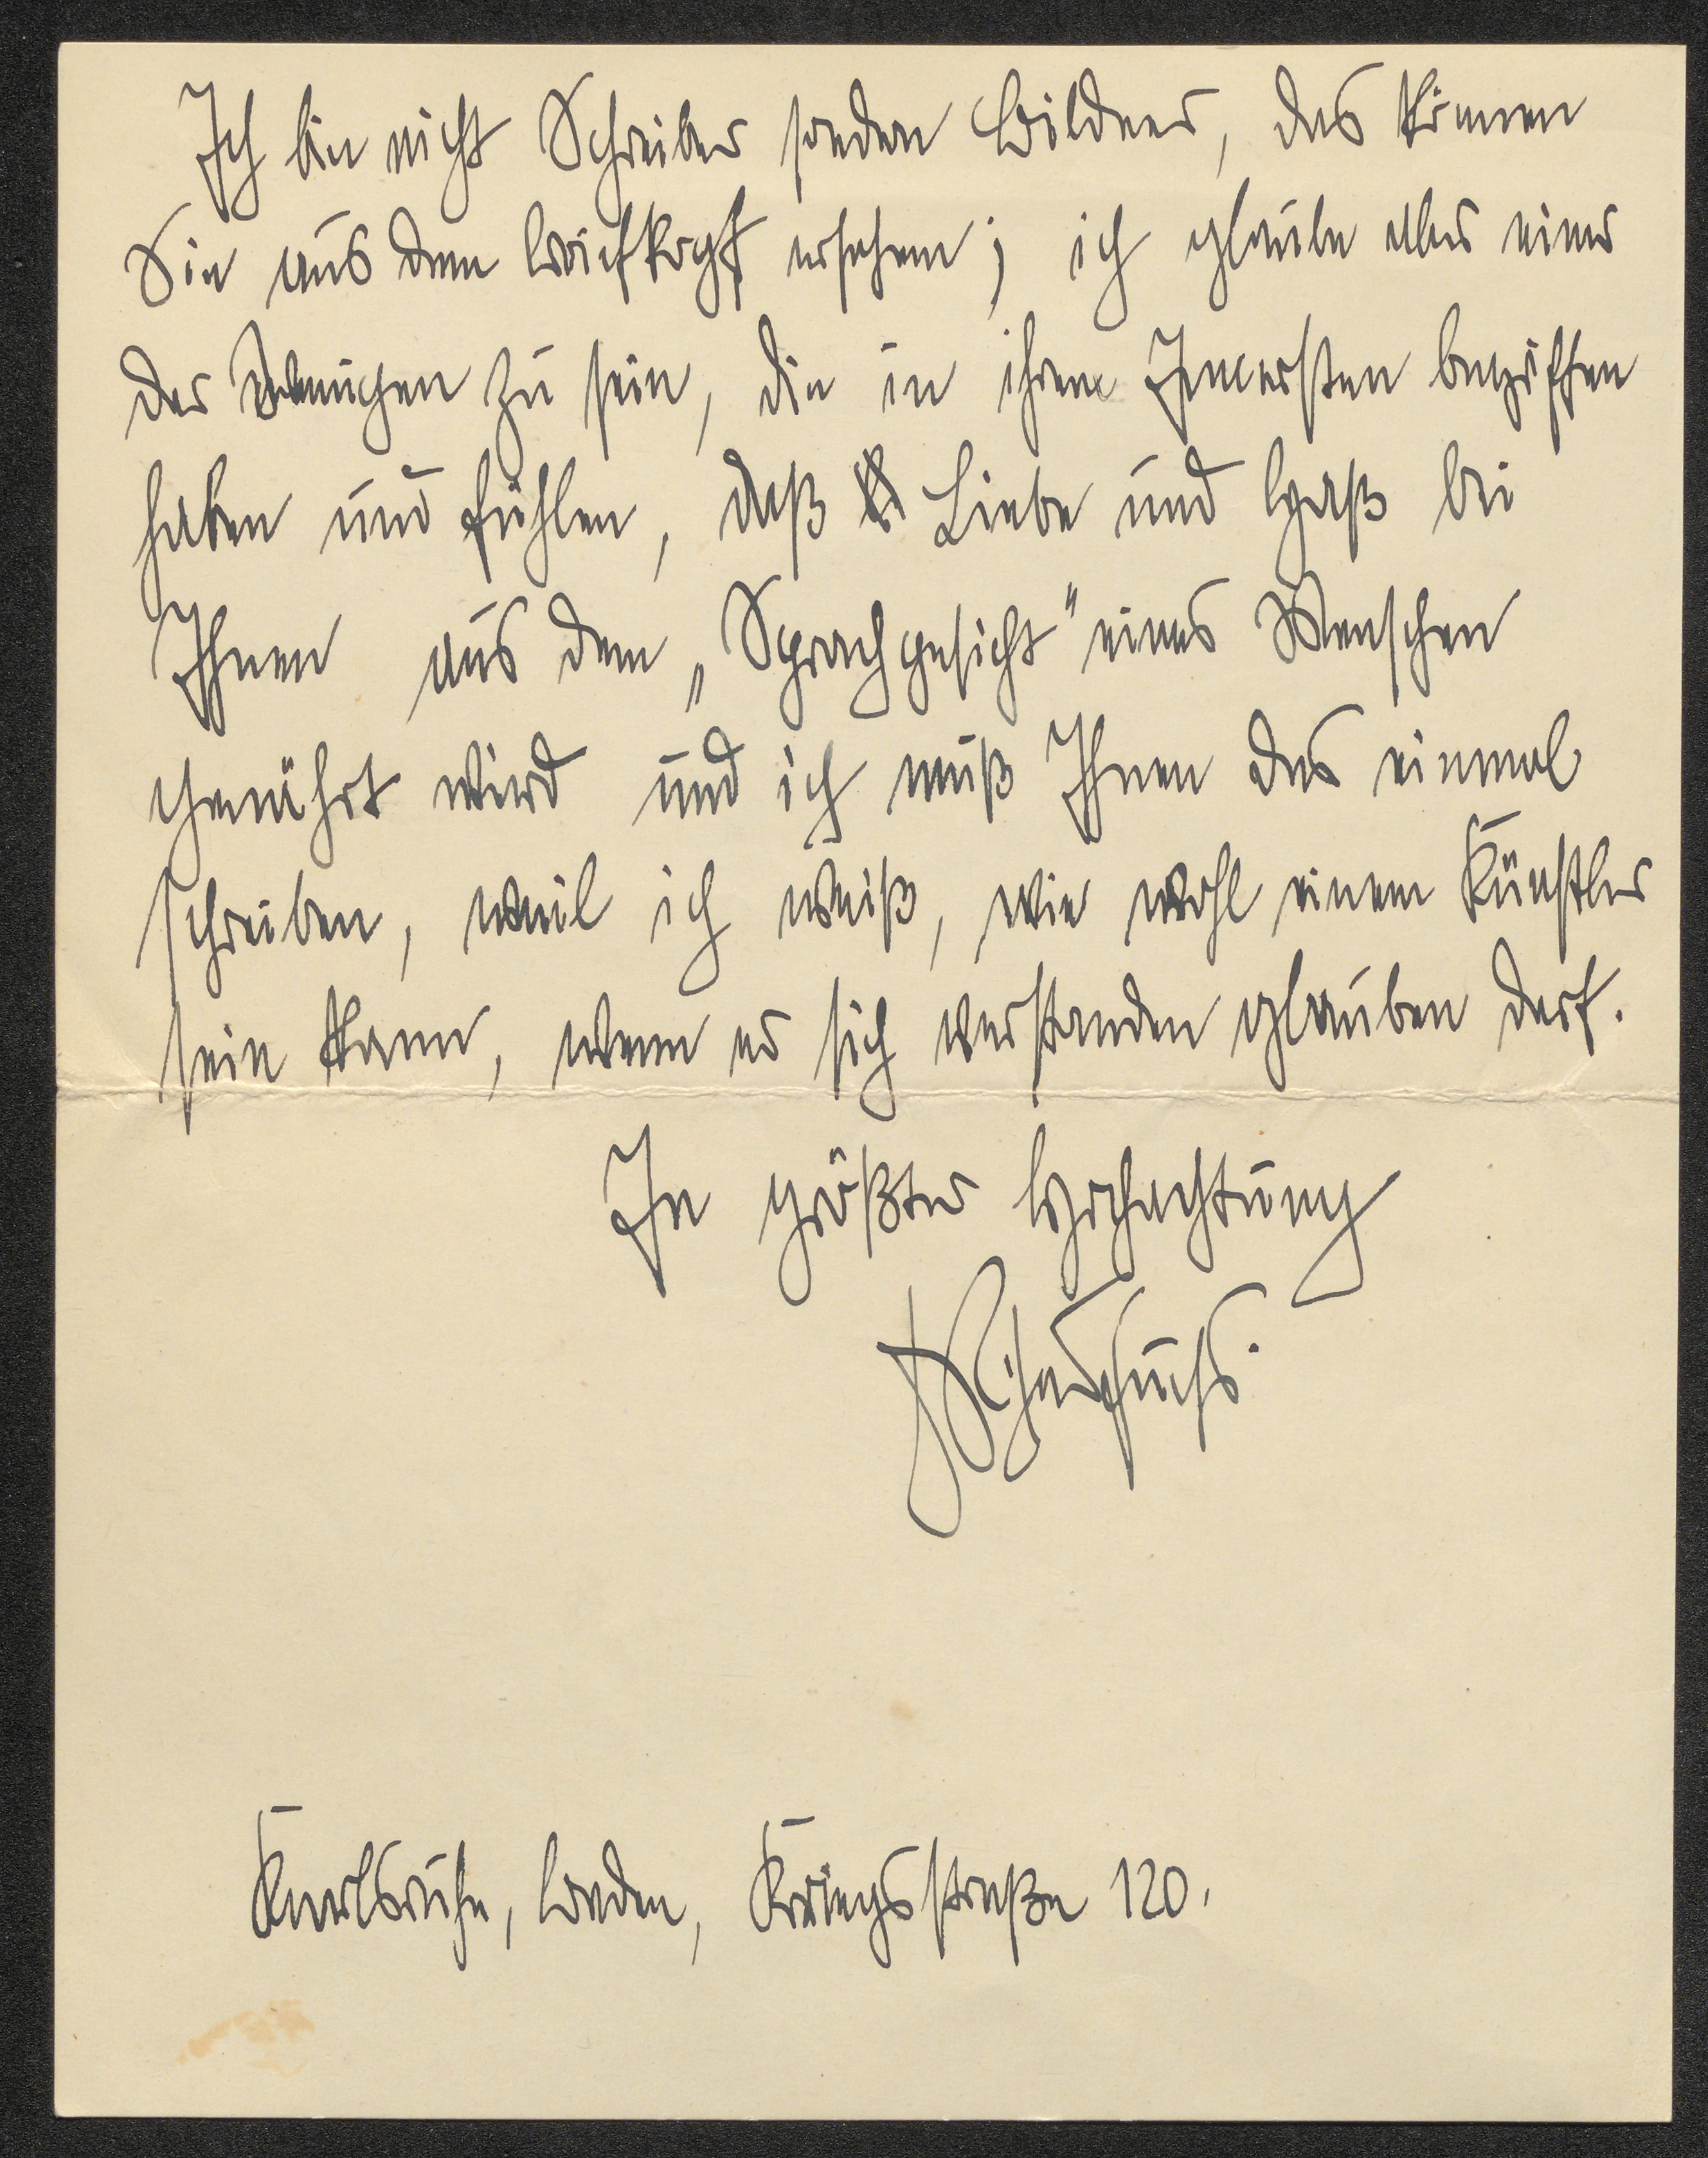 Ich bin nicht Schreiber sondern Bildner, das können
Sie aus dem Briefkopf ersehen; ich glaube aber einer
der Wenigen zu sein, die in ihrem Innersten begriffen
haben und fühlen, daß Liebe und Haß bei
Ihnen aus dem „Sprachgesicht" eines Menschen
genährt wird und ich muß Ihnen das einmal
schreiben, weil ich weiß, wie wohl einem Künstler
sein kann, wenn er sich verstanden glauben darf.
In größter Hochachtung
Karlsruhe, Baden, Kriegsstraße 120.